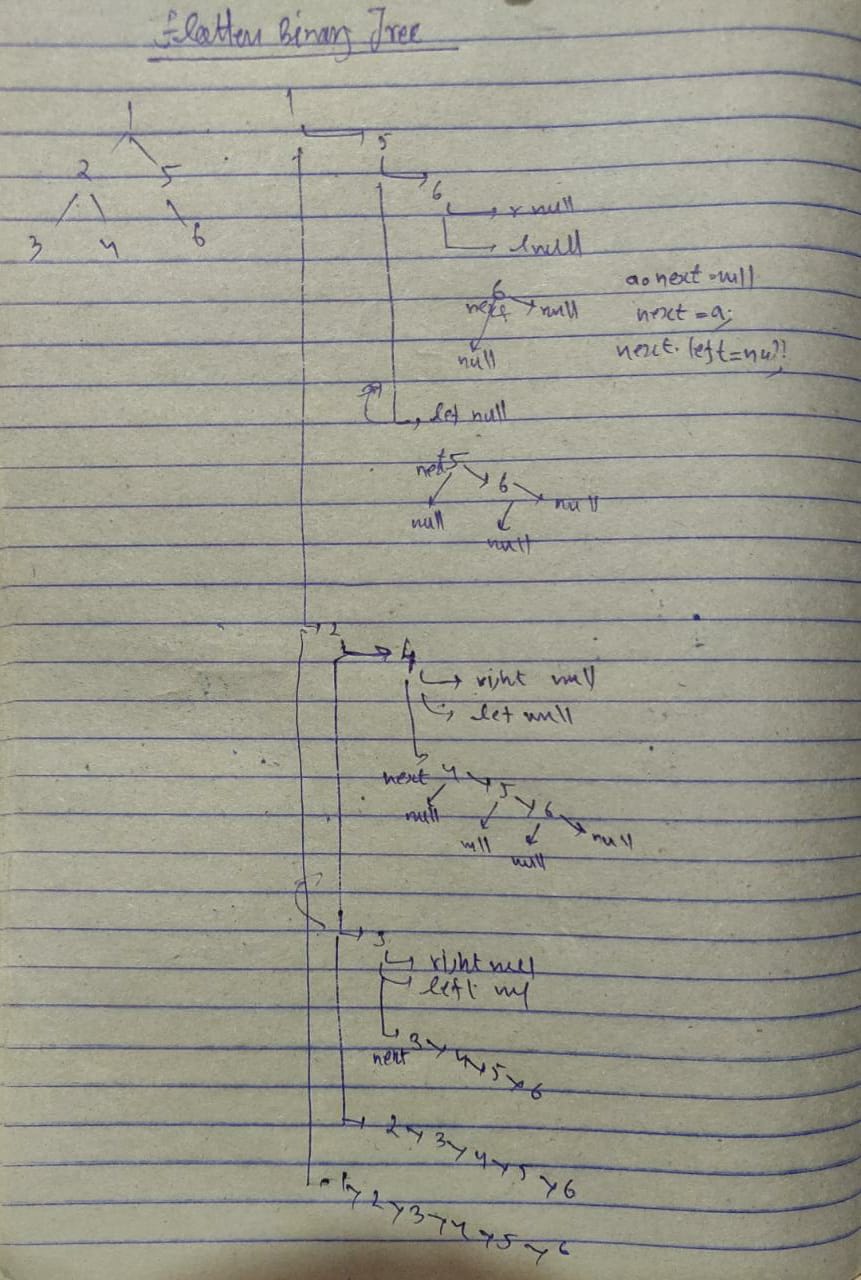 Flatten Binary Tree
1
1
2
5
5
3
4
6
6
r null
l null
6
a. next = null
next
null
next = a;
null
next. left = null
let null
next 5
6
null
null
null
2
4
right null
let null
next 4
5
6
null
null
null
null
3
right null
left nul
3
next
4
5
6
2
3
4
5
6
1
2
3
4
5
6